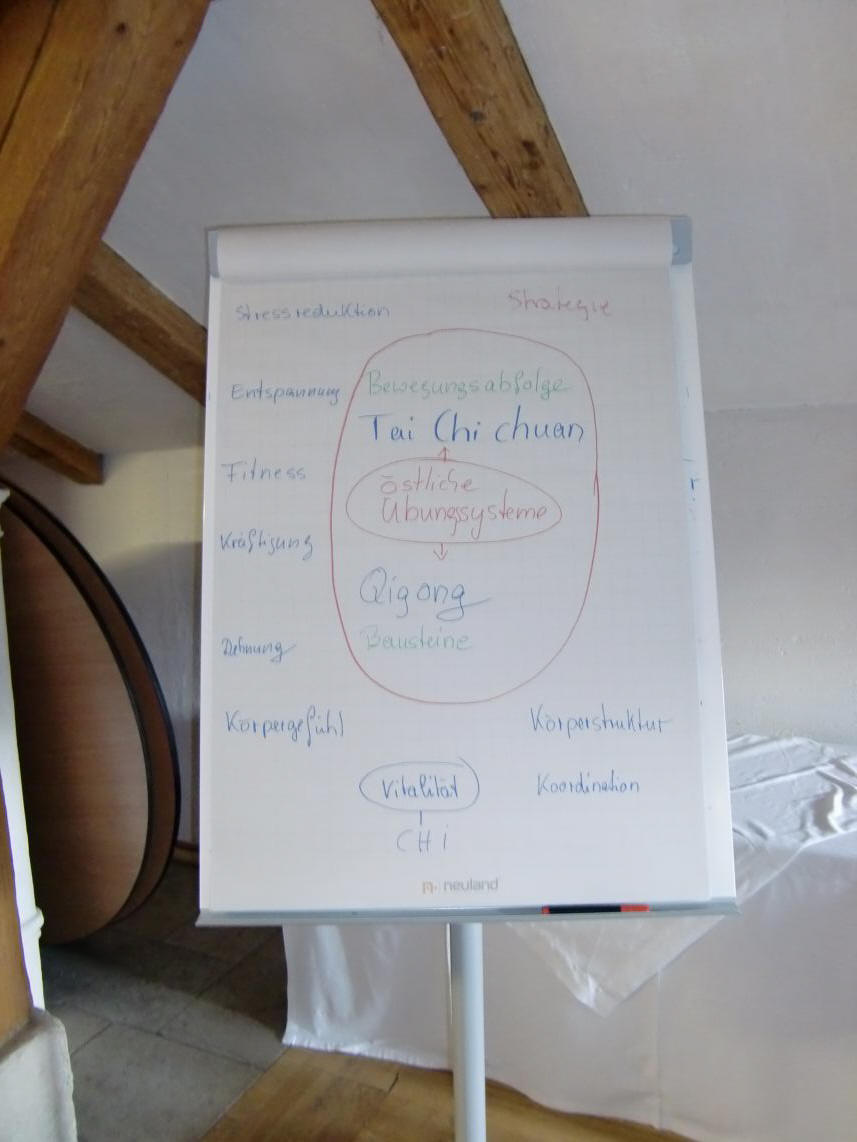 Stressreduktion
Strategie
Entspannung
Bewegungsabfolge
Tai Chi chuan
Fitness
östliche
Übungssysteme
Kräftigung
Qigong
Dehnung
Bausteine
Körpergefühl
Körperstruktur
Vitalität
Koordination
CHi
neuland